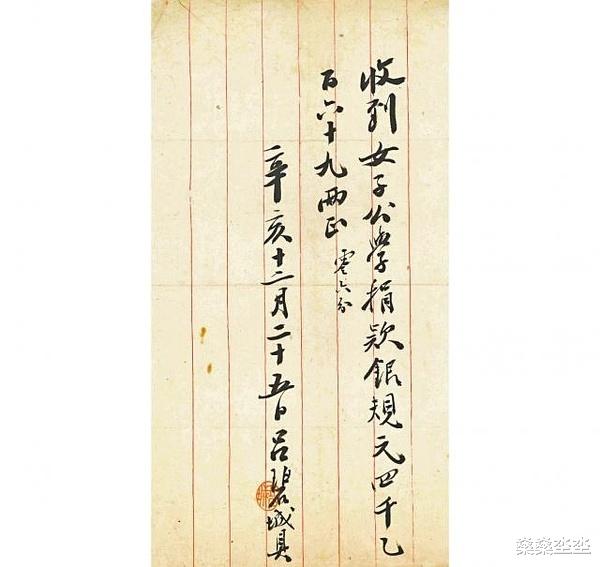 收到女子公學捐款銀規元四千乙
百六十九兩正 零六分
辛亥十二月二十五日呂碧城具
燊燊坐坐